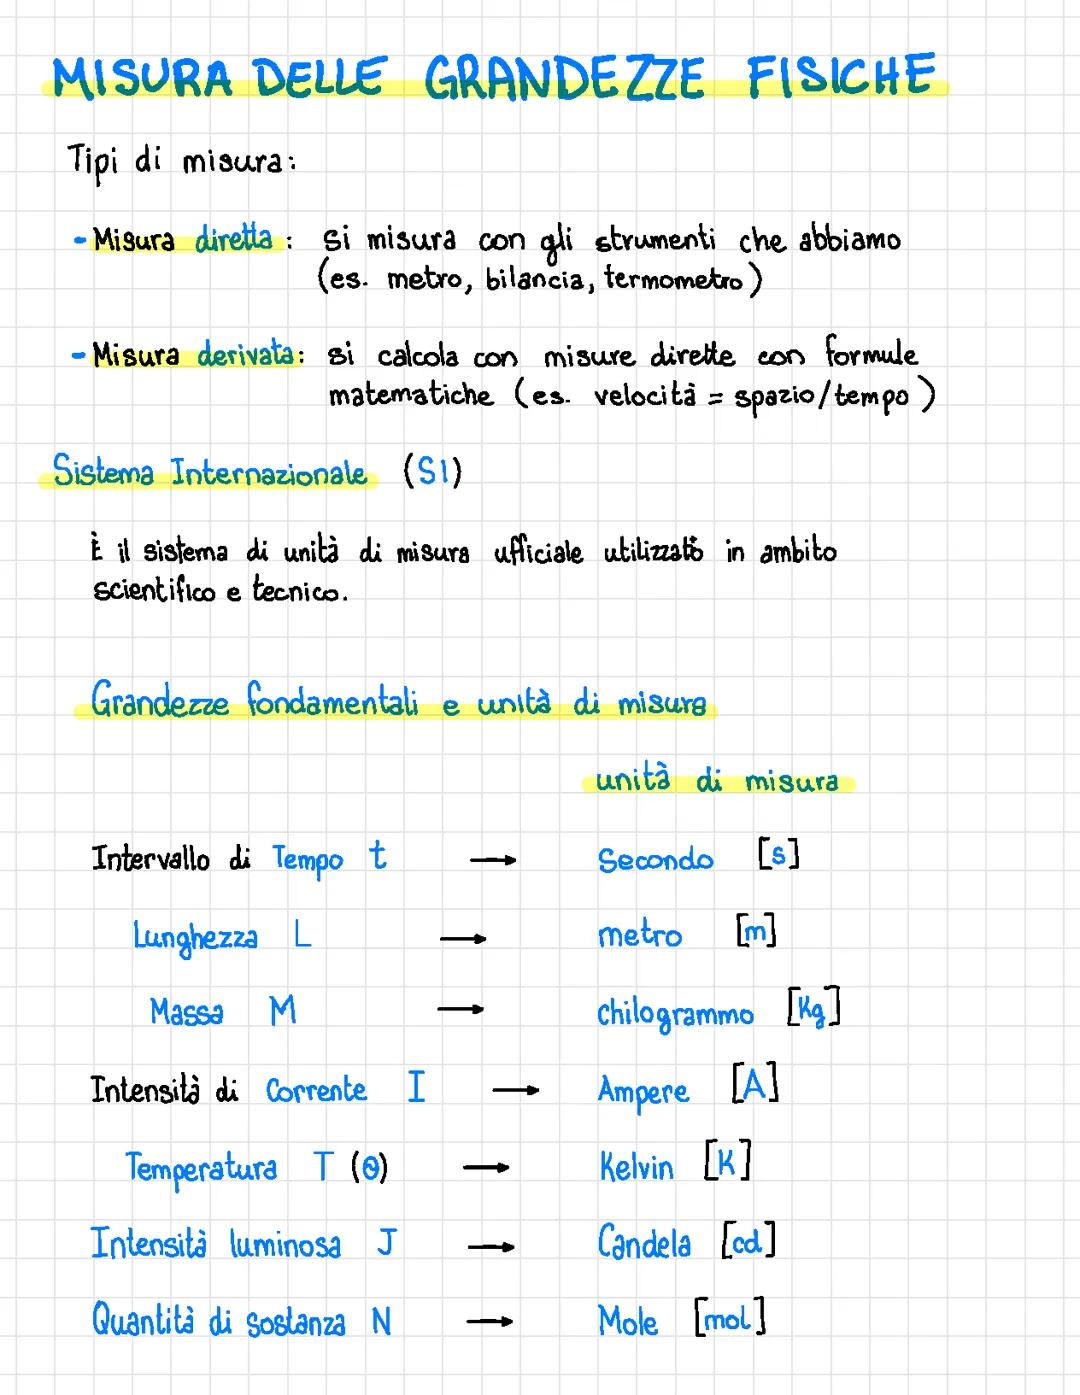 MISURA DELLE GRANDEZZE FISICHE
Tipi di misura:
- Misura diretta: si misura con gli strumenti che abbiamo
(es. metro, bilancia, termometro)
- Misura derivata: si calcola con misure dirette con formule
matematiche (es. velocità = spazio/tempo)
Sistema Internazionale (SI)
È il sistema di unità di misura ufficiale utilizzato in ambito
scientifico e tecnico.
Grandezze fondamentali e unità di misura
unità di misura
Intervallo di Tempo t → Secondo [s]
Lunghezza L → metro [m]
Massa M → chilogrammo [Kg]
Intensità di Corrente I → Ampere [A]
Temperatura T (Θ) → Kelvin [K]
Intensità luminosa J → Candela [cd]
Quantità di sostanza N → Mole [mol]